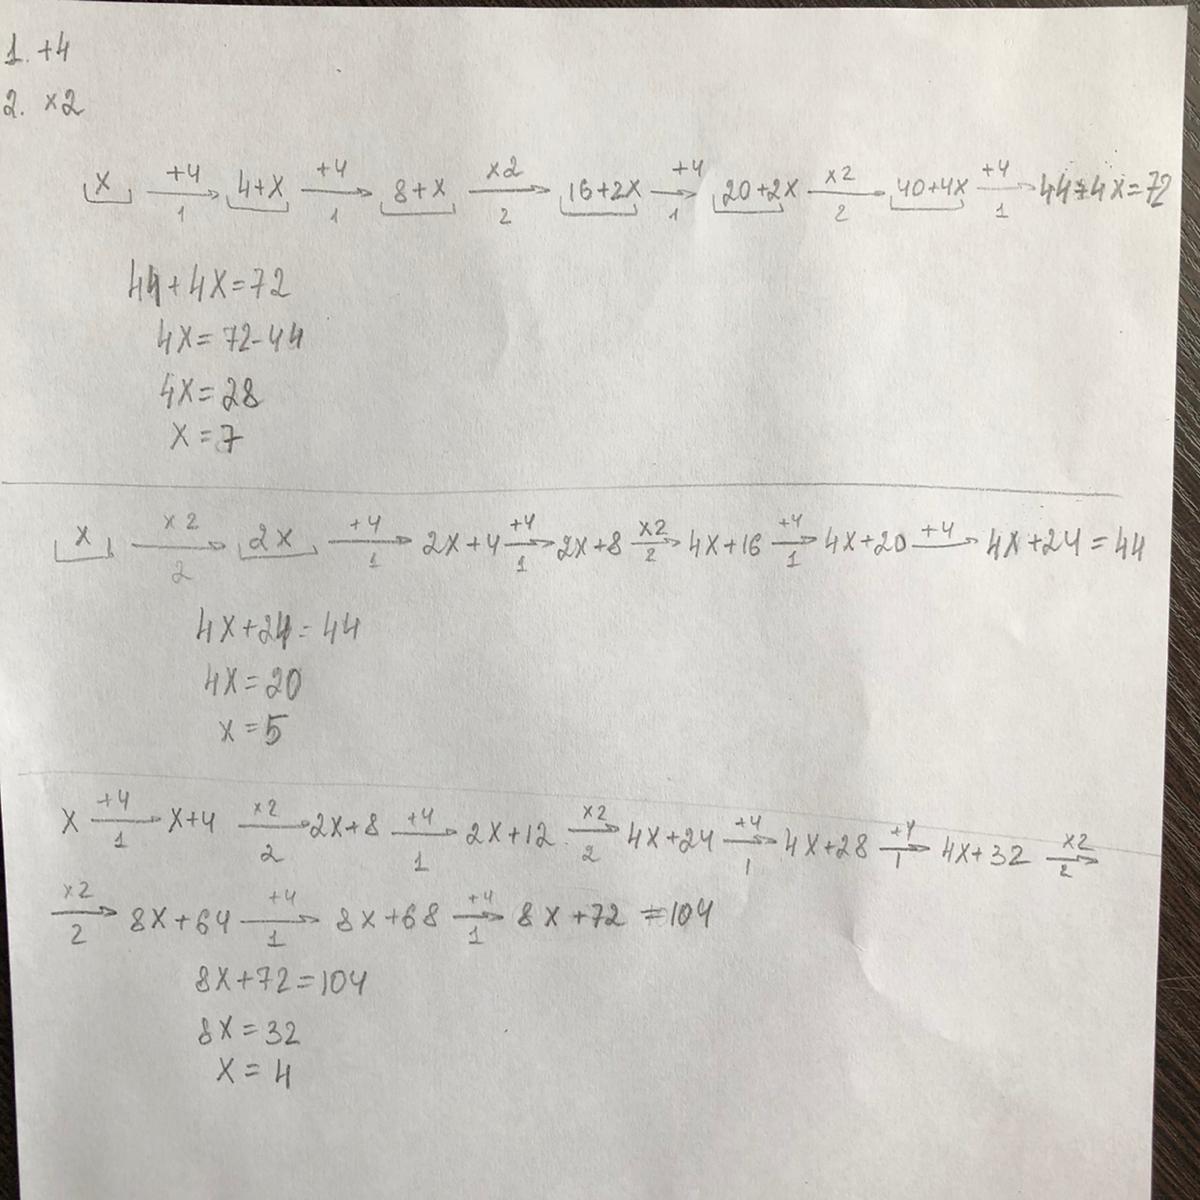 1. +4
2. ×2
x +4 → 1 4+x +4 → 1 8+x ×2 → 2 16+2x +4 → 1 20+2x ×2 → 2 40+4x +4 → 1 44+4x=72
44+4x=72
4x=72-44
4x=28
x=7
x ×2 → 2 2x +4 → 1 2x+4 +4 → 1 2x+8 ×2 → 2 4x+16 +4 → 1 4x+20 +4 → 4x+24=44
4x+24=44
4x=20
x=5
x +4 → 1 x+4 ×2 → 2 2x+8 +4 → 1 2x+12 ×2 → 2 4x+24 +4 → 1 4x+28 +4 → 1 4x+32 ×2 → 2
×2 → 2 8x+64 +4 → 1 8x+68 +4 → 1 8x+72=104
8x+72=104
8x=32
x=4